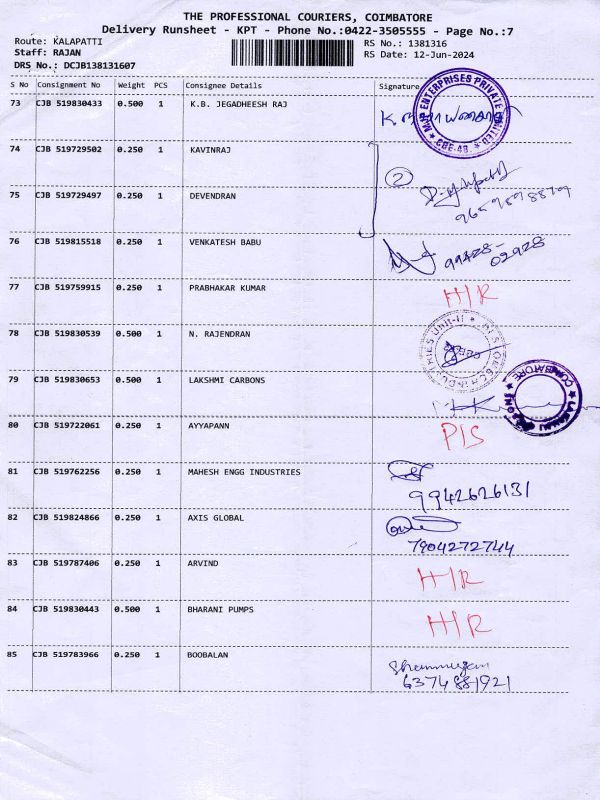 THE PROFESSIONAL COURIERS, COIMBATORE
Delivery Runsheet - KPT - Phone No.:0422-3505555 - Page No.:7
Route: KALAPATTI
RS No.: 1381316
Staff: RAJAN
RS Date: 12-Jun-2024
DRS No.: DCJB138131607
S No Consignment No Weight PCS Consignee Details Signature
73 CJB 519830433 0.500 1 K.B. JEGADHEESH RAJ
ENTERPRISES PRIVATE LIMITED
CBE-48.
74 CJB 519729502 0.250 1 KAVINRAJ
2
75 CJB 519729497 0.250 1 DEVENDRAN
76 CJB 519815518 0.250 1 VENKATESH BABU 99428-02928
77 CJB 519759915 0.250 1 PRABHAKAR KUMAR H/R
78 CJB 519830539 0.500 1 N. RAJENDRAN
79 CJB 519830653 0.500 1 LAKSHMI CARBONS
COIMBATORE
80 CJB 519722061 0.250 1 AYYAPANN P/S
81 CJB 519762256 0.250 1 MAHESH ENGG INDUSTRIES 9942626131
82 CJB 519824866 0.250 1 AXIS GLOBAL 7904272744
83 CJB 519787406 0.250 1 ARVIND H/R
84 CJB 519830443 0.500 1 BHARANI PUMPS H/R
85 CJB 519783966 0.250 1 BOOBALAN Shanmugam
6374881921